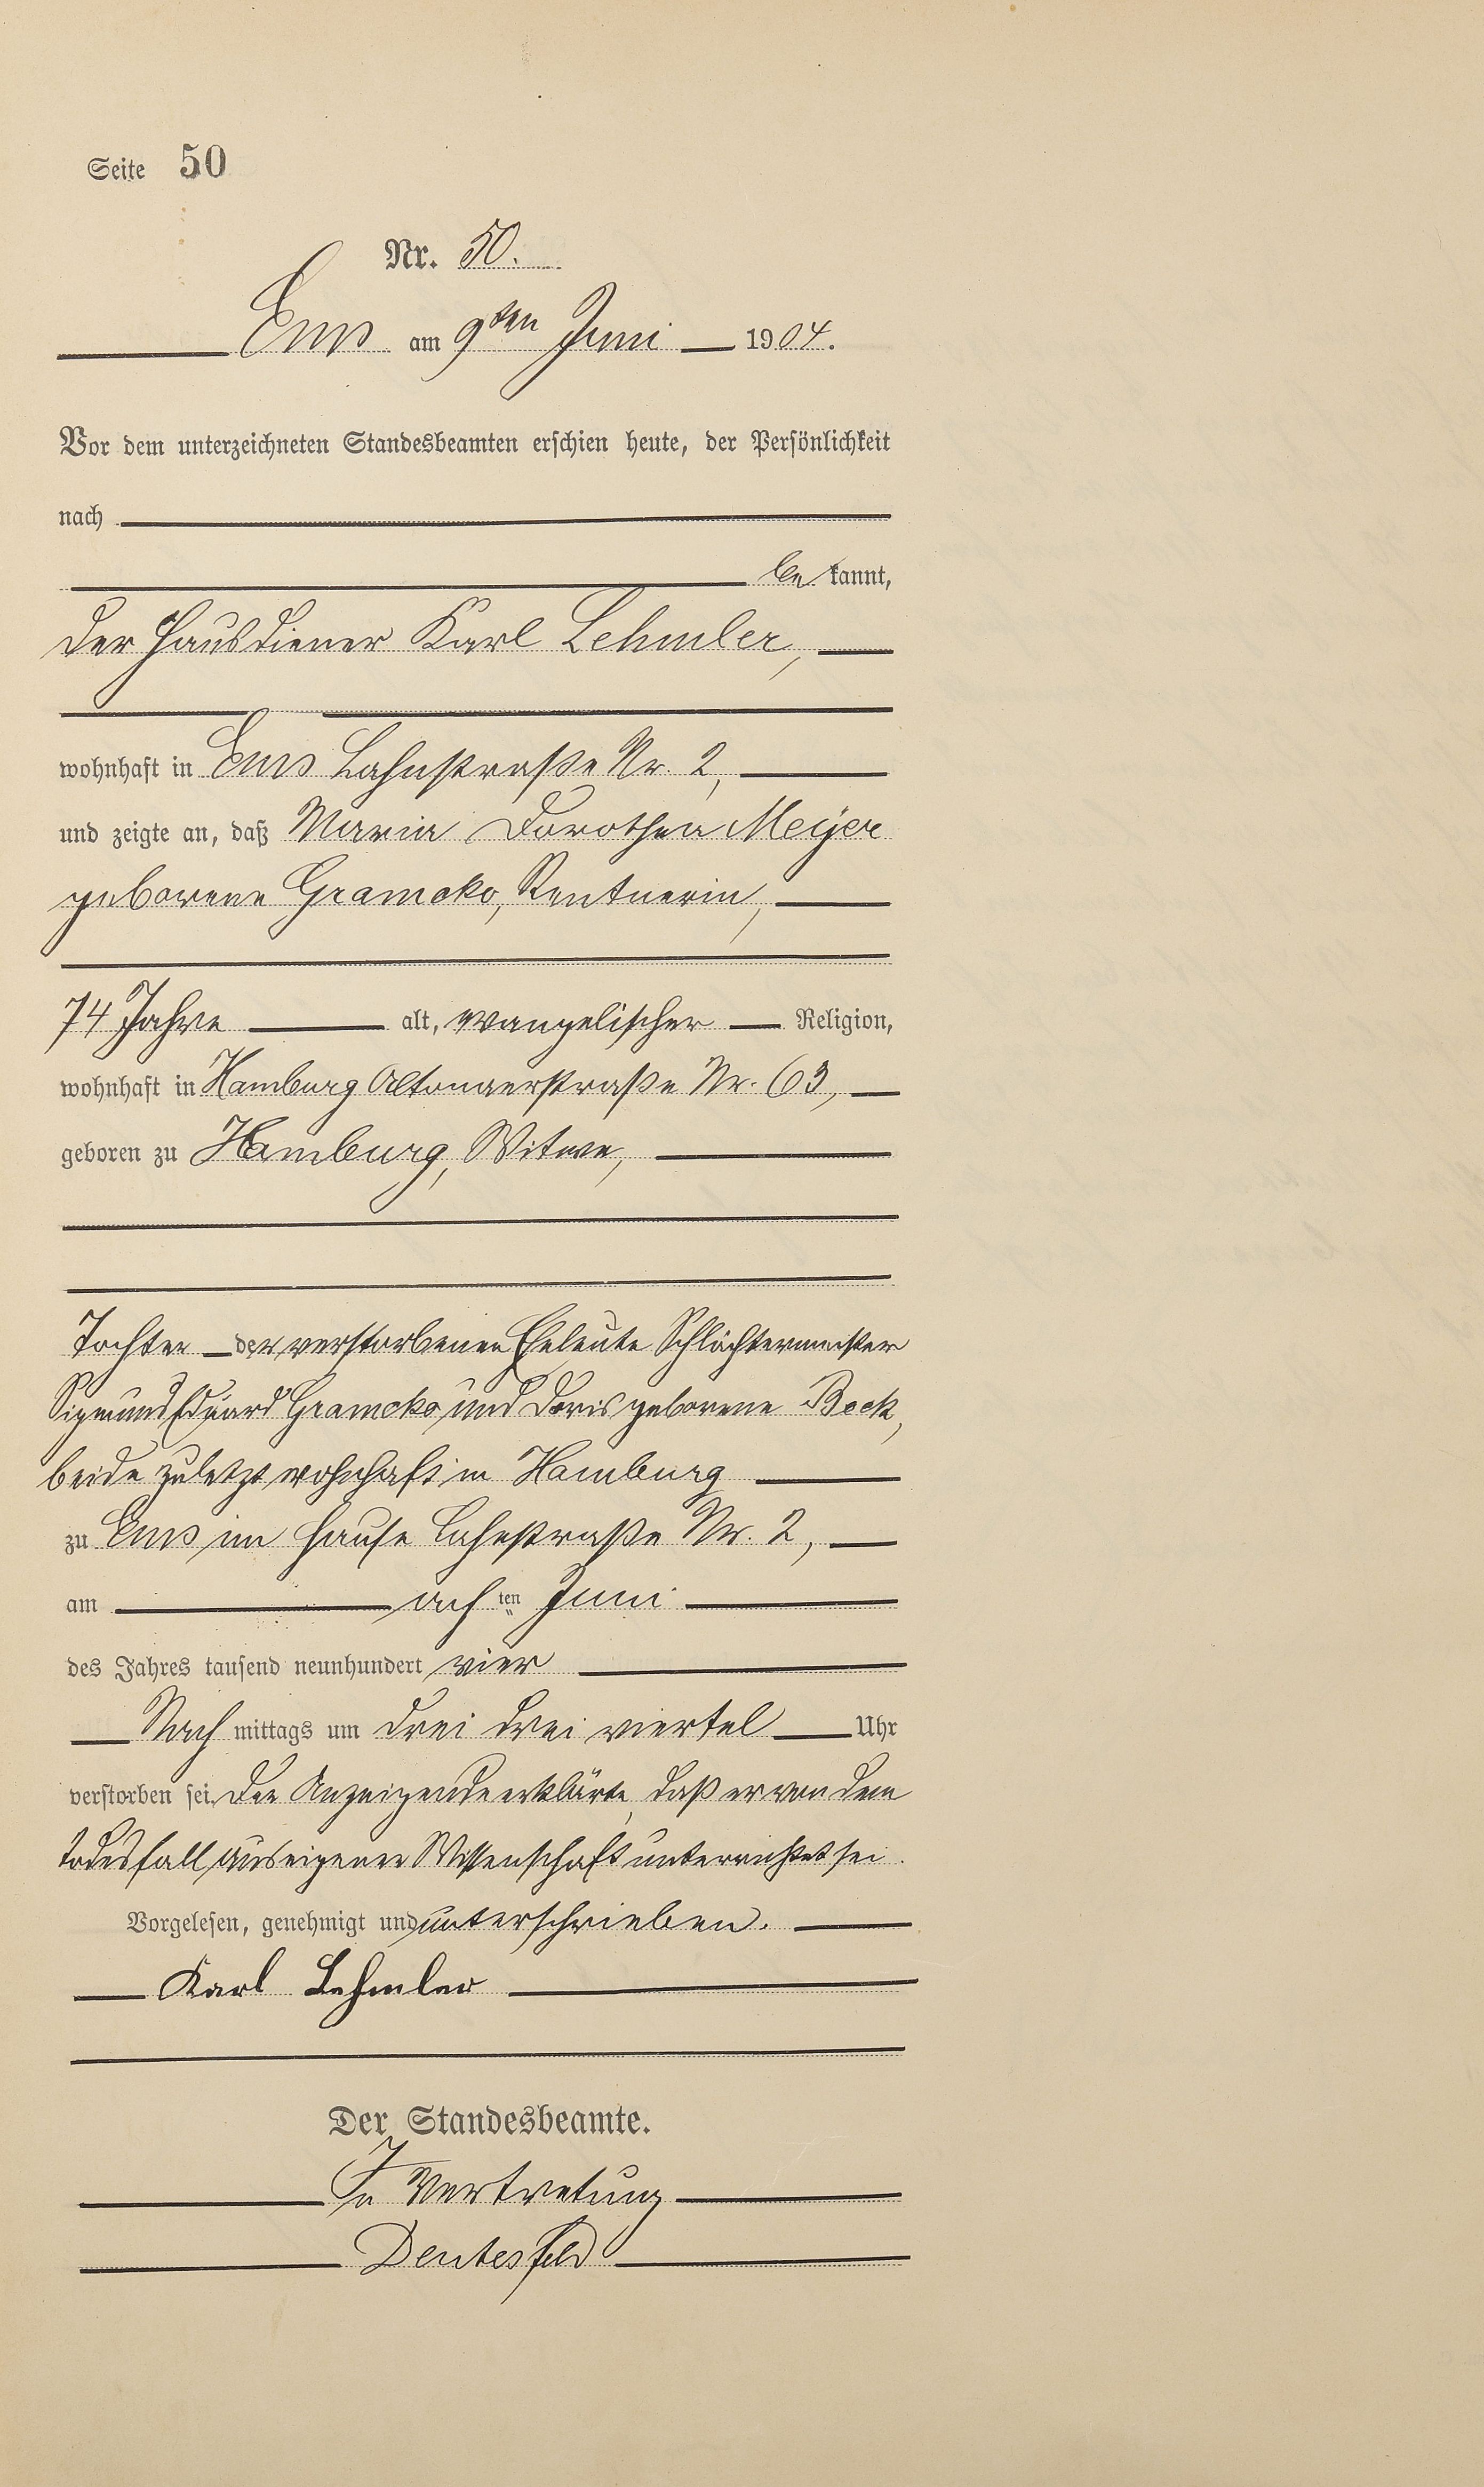 Seite 50
Nr. 50.
Ems am 9ten Juni 1904.
Vor dem unterzeichneten Standesbeamten erschien heute, der Persönlichkeit
nach
be kannt,
der Hausdiener Karl Lehmler,
wohnhaft in Ems Lahnstraße Nr. 2,
und zeigte an, daß Maria Dorothea Meyer
geborene Gramcko, Rentnerin,
74 Jahre alt, evangelischer Religion,
wohnhaft in Hamburg Altonaerstraße Nr. 63,
geboren zu Hamburg, Witwe,
Tochter der verstorbenen Eheleute Schlächtermeister
Sigmund Eduard Gramcko und Doris geborene Beck,
beide zuletzt wohnhaft in Hamburg
zu Ems im Hause Lahnstraße Nr. 2,
am achten Juni
des Jahres tausend neunhundert vier
Nach mittags um drei drei viertel Uhr
verstorben sei. Der Anzeigende erklärte, daß er von dem
Todesfall aus eigener Wissenschaft unterrichtet sei.
Vorgelesen, genehmigt und unterschrieben.
Karl Lehmler
Der Standesbeamte.
In Vertretung
Dentesfeld